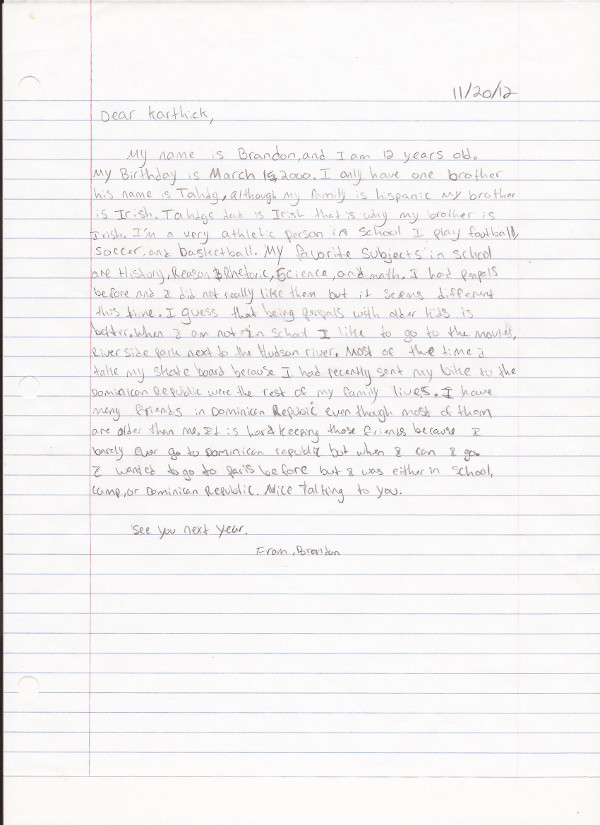 11/20/12
Dear Karthick,
My name is Brandon, and I am 12 years old.
My Birthday is March 15, 2000. I only have one brother
his name is Tahdg, although my family is hispanic my brother
is Irish. Tahdgs dad is Irish that is why my brother is
Irish. I'm a very athletic person in school I play football,
soccer, and basketball. My favorite subjects in school
are History, Reason & Rhetoric, Science, and math. I had penpals
before and I did not really like them but it seems different
this time. I guess that being penpals with older kids is
bettr. When I am not in school I like to go to the movies,
River side park next to the Hudson river. Most of the time I
take my skate board because I had recently sent my bike to the
Dominican Republic were the rest of my family lives. I have
many friends in Dominican Republic even though most of them
are older then me. It is hard keeping those friends because I
barely ever go to Dominican republic but when I can I go
I wanted to go to paris before but I was either in school,
camp, or Dominican Republic. Nice Talking to you.
See you next year.
From, Brandon